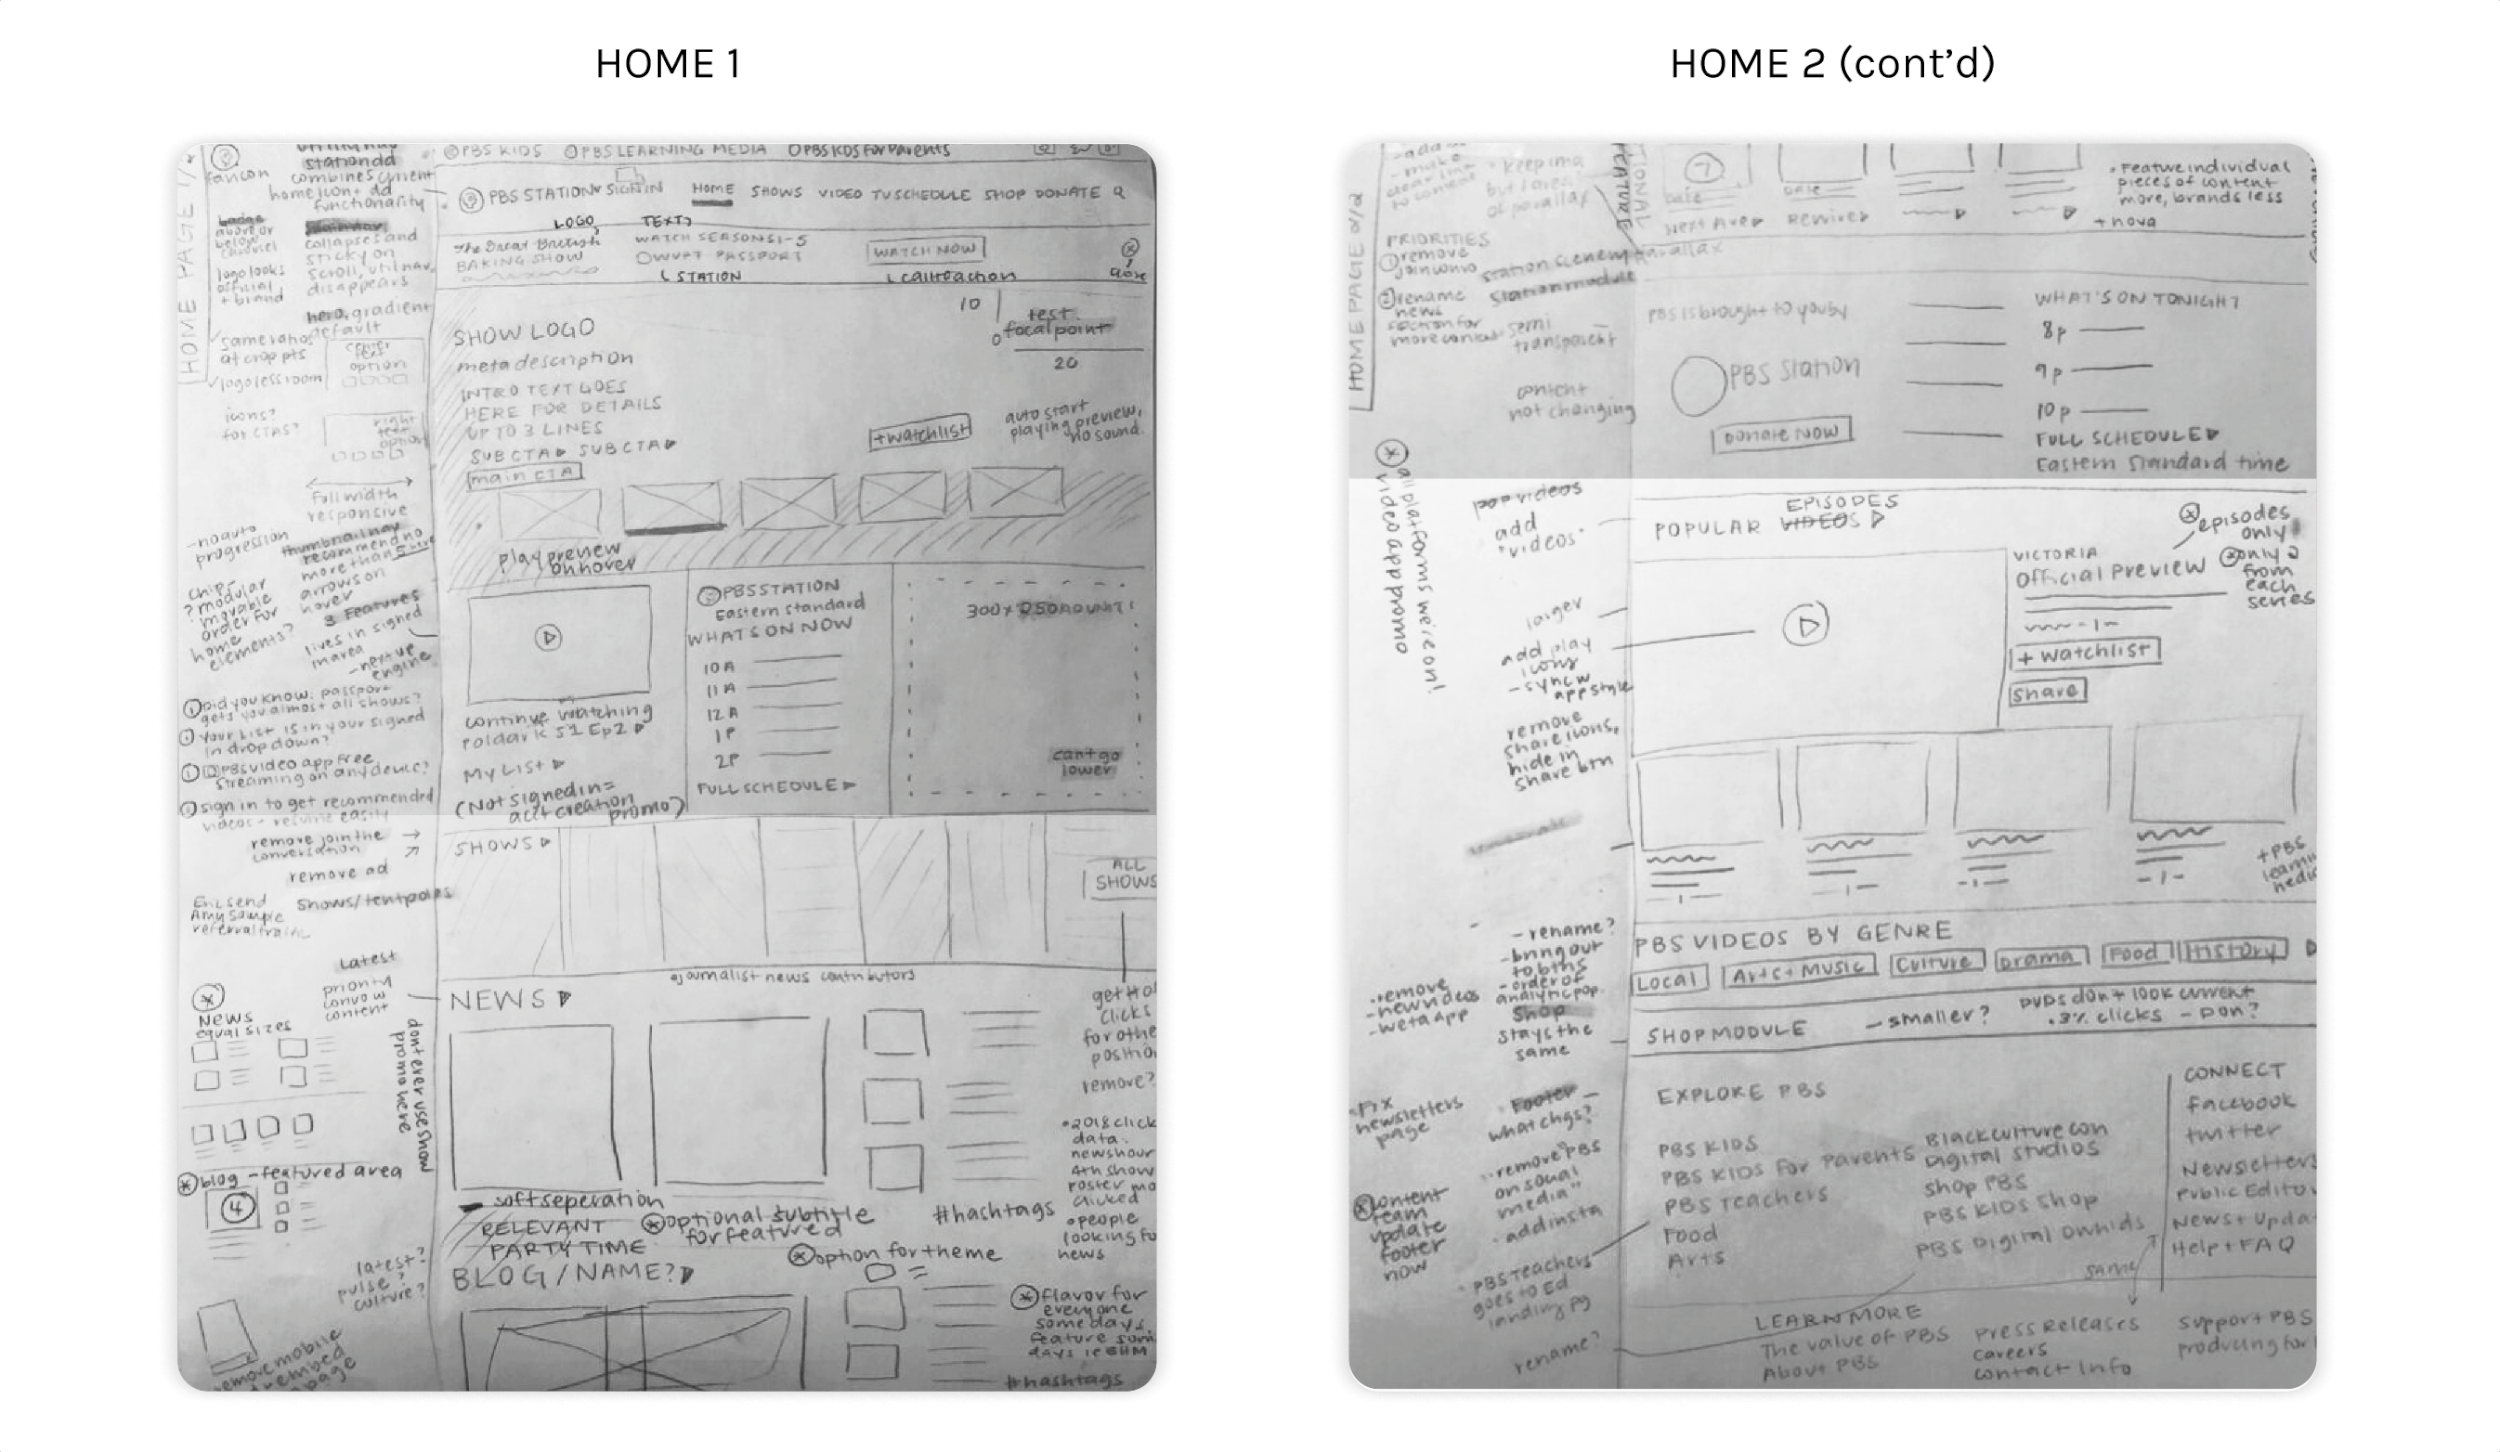 HOME 1
HOME 2 (cont'd)
HOME PAGE 1/2
favicon
stationdd
combines current
home icon + dd
functionality
badge
above or
below
carousel
logo looks
official
+ brand
collapses and
sticky on
scroll, util nav
disappears
hero, gradient
default
same ratio
at crop pts
logo less room
center
text
option
icons?
for CTAS?
right
text
option
full width
responsive
-no auto
progression
thumbnail nav
recommend no
more than 5 here
arrows on
hover
chip-
? modular
movable
order for
home
elements?
3 Features
lives in signed
in area
-next up
engine
Did you know: passport
gets you almost all shows?
Your List is in your signed
in drop down?
PBS video app Free
Streaming on any device?
sign in to get recommended
videos + resume easily
remove join the
conversation
remove ad
Eric send
Amy sample
referral traffic
Shows/tentpoles
Latest
priority
convo w
content
NEWS
equal sizes
dont ever use show
promo here
blog - featured area
4
latest?
pulse?
culture?
remove mobile
embed
page
PBS KIDS PBS LEARNING MEDIA PBS KIDS for Parents
PBS STATION SIGN IN HOME SHOWS VIDEO TV SCHEDULE SHOP DONATE
LOGO TEXT
The Great British
BAKING SHOW
WATCH SEASONS 1-5
OWVPT PASSPORT
WATCH NOW
STATION
call to action
close
SHOW LOGO
meta description
INTRO TEXT GOES
HERE FOR DETAILS
UP TO 3 LINES
SUB CTA SUB CTA
main CTA
10
test.
focal point
0
20
+watchlist
auto start
playing preview,
no sound.
play preview
on hover
continue watching
Poldark S1 Ep2
My List
(Not signed in =
acct creation
promo)
PBS STATION
Eastern standard
WHATS ON NOW
10A
11A
12A
1P
2P
FULL SCHEDULE
300 x 250 AD UNIT!
cant go
lower
SHOWS
ALL
SHOWS
journalist news contributors
NEWS
clicks
remove?
2018 click
data:
newshour
4th show
clicked
people
news
soft seperation
RELEVANT
PARTY TIME
optional subtitle
for featured
#hashtags
option for theme
BLOG/NAME?
flavor for
everyone
some days,
#hashtags
HOME PAGE 2/2
keep img
but 1 area
of parallax
PRIORITIES
1 remove
2 rename
news
section for
more context
station scenery parallax
station module
semi
transparent
content
not changing
7
Date
Date
Next Ave
Rewire
Feature individual
pieces of content
more, brands less
+nova
PBS is brought to you by
PBS Station
DONATE NOW
WHAT'S ON TONIGHT
8p
9p
10p
FULL SCHEDULE
Eastern Standard time
all platforms we're on!
video app promo
pop videos
add
"videos"
larger
add play
icons
-sync w
app style
remove
share icons,
hide in
share btn
EPISODES
POPULAR VIDEOS
episodes
only
only 2
from
each
series
VICTORIA
Official Preview
+ watchlist
share
+PBS
-rename?
-bring out
to btns
-order of
analytic pop.
-remove
-new videos
-weta app
PBS VIDEOS BY GENRE
Local Arts + Music Culture Drama Food History
Shop
stays the
same
SHOP MODULE - smaller?
DVDS don't 100K current
.3% clicks - pon?
Fix
newsletters
page
Footer -
what chgs?
remove PBS
on social
media"
add insta
content
team
update
footer
now
PBS Teachers
goes to Ed
landing pg
rename?
EXPLORE PBS
PBS KIDS
PBS KIDS for Parents
PBS Teachers
Food
Arts
Blackculture con
Digital studios
Shop PBS
PBS KIDS Shop
PBS Digital
CONNECT
Facebook
twitter
Newsletters
Public Editor
News + Upda
Help + FAQ
same
LEARN MORE
The value of PBS
About PBS
Press Releases
careers
contact Info
Support PBS
Producing for